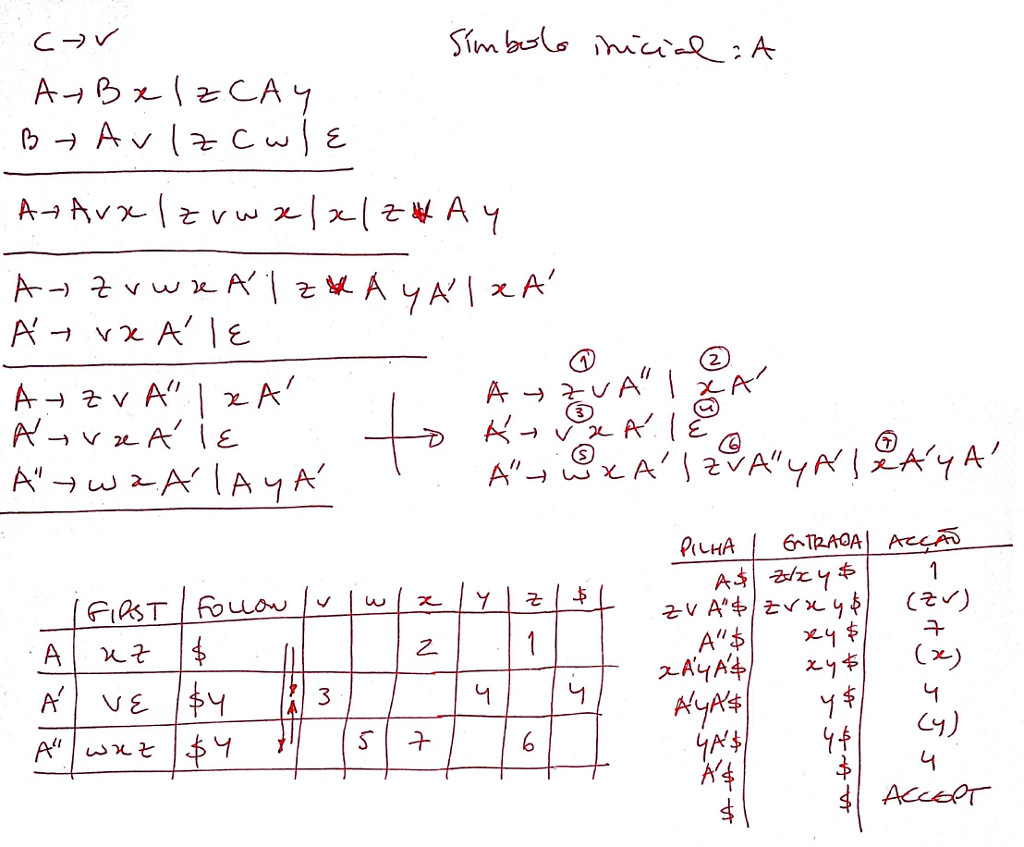 C → v
Símbolo inicial : A
A → B x | z C A y
B → A v | z C w | ε
A → A v x | z v w x | x | z v A y
A → z v w x A' | z v A y A' | x A'
A' → v x A' | ε
A → z v A'' | x A'
A' → v x A' | ε
A'' → w x A' | A y A'
① ②
A → z v A'' | x A'
③ ④
A' → v x A' | ε
⑤ ⑥ ⑦
A'' → w x A' | z v A'' y A' | x A' y A'
FIRST FOLLOW v w x y z $
A x z $ 2 1
A' v ε $ y 3 4 4
A'' w x z $ y 5 7 6
PILHA ENTRADA ACÇÃO
A$ zvxy$ 1
z v A''$ z v x y $ (zv)
A''$ xy$ 7
xA'yA'$ xy$ (x)
A'yA'$ y$ 4
yA'$ y$ (y)
A'$ $ 4
$ $ ACCEPT